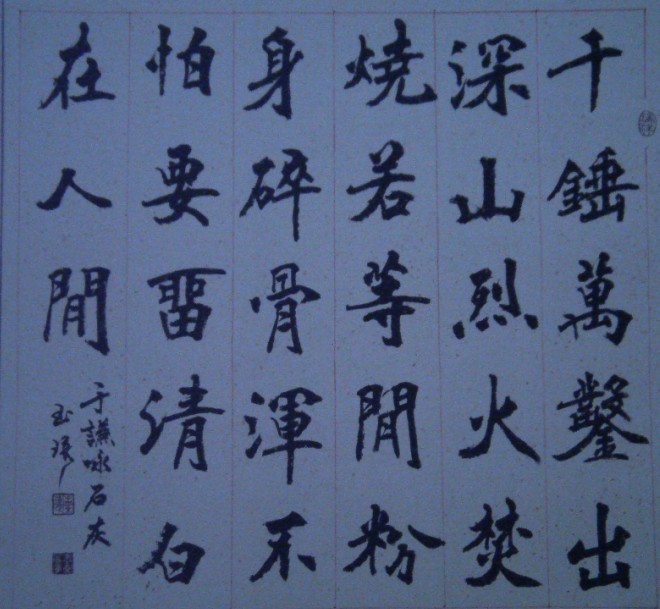 千錘萬鑿出
深山烈火焚
焼若等閒粉
身碎骨渾不
怕要畱清白
在人閒
于謙咏石灰
玉